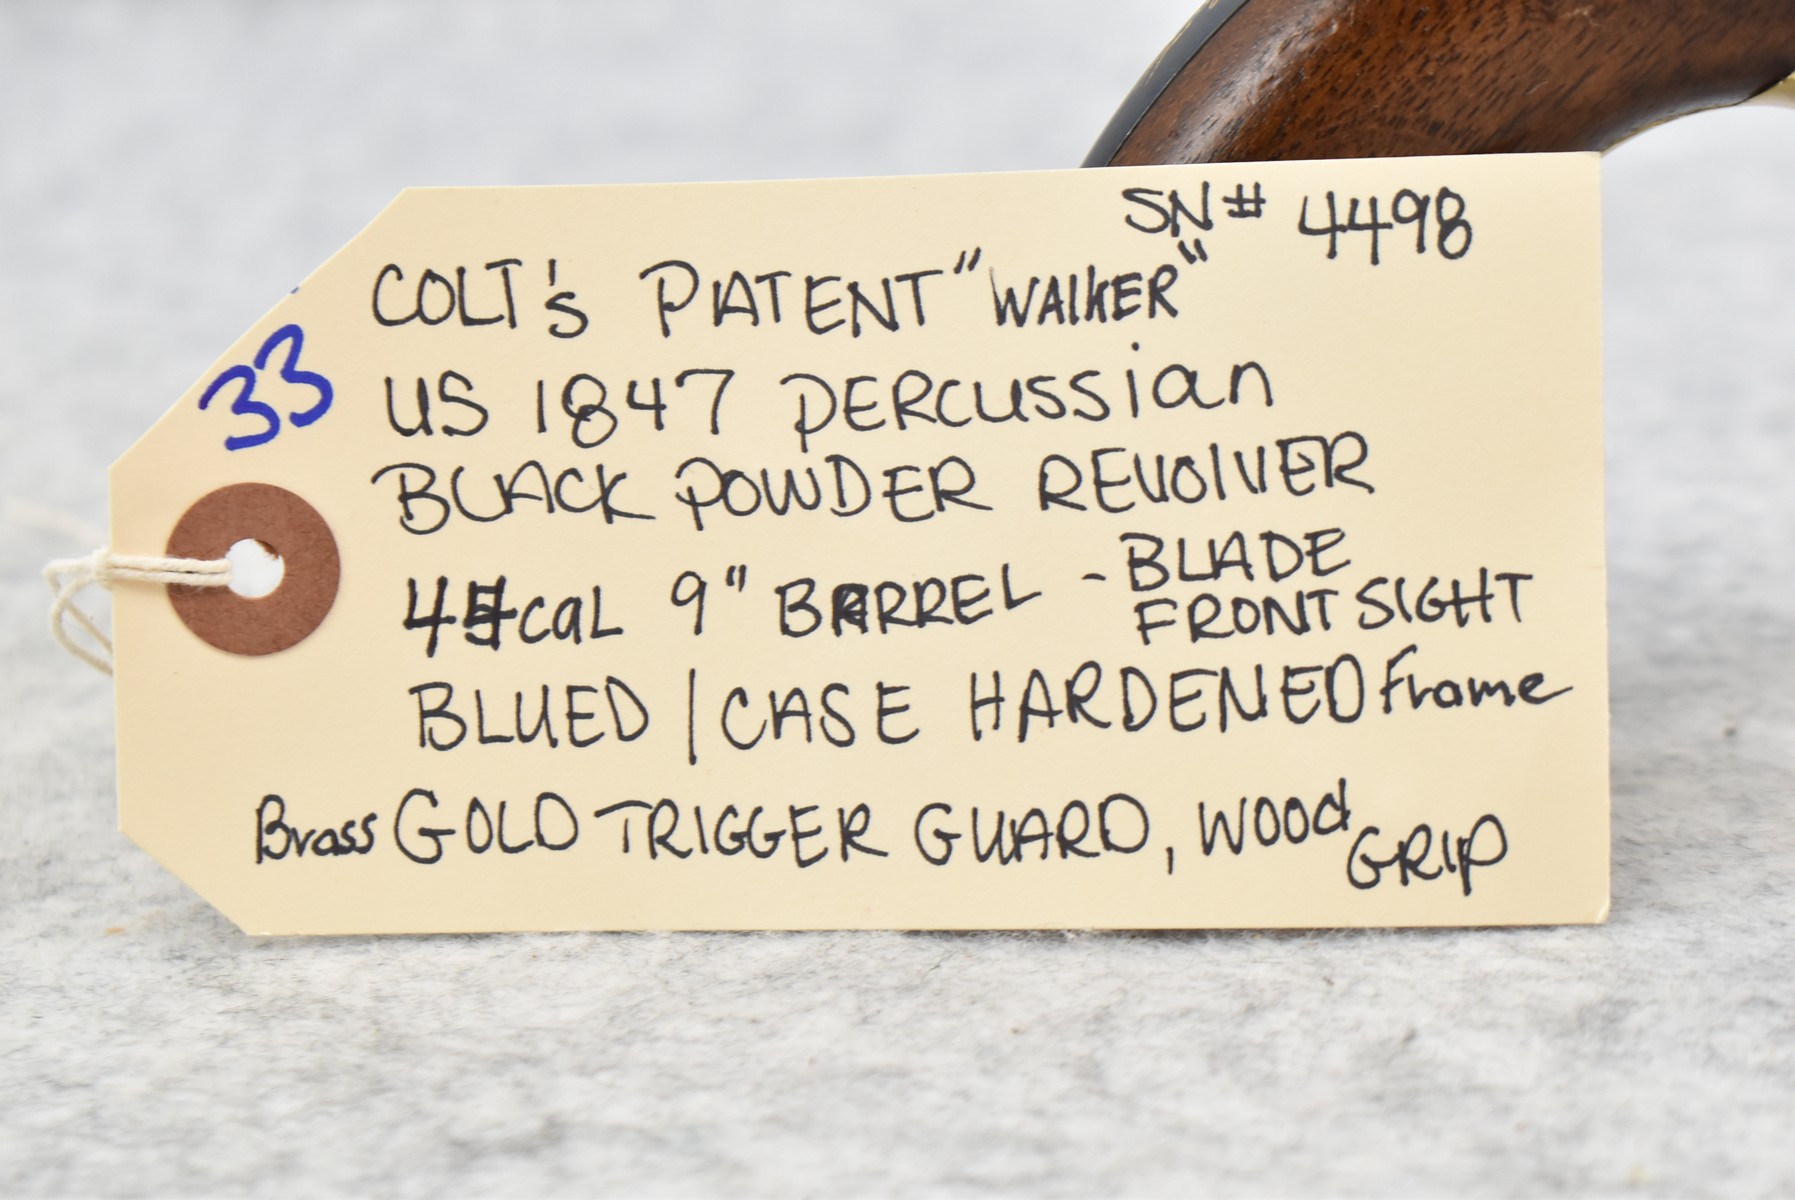 SN# 4498
COLT's PATENT "WALKER"
33
US 1847 PERCUSSian
BLACK POWDER REVOLVER
cal 9" BARREL - BLADE
FRONT SIGHT
BLUED / CASE HARDENED Frame
Brass GOLD TRIGGER GUARD, WOOd
GRIP